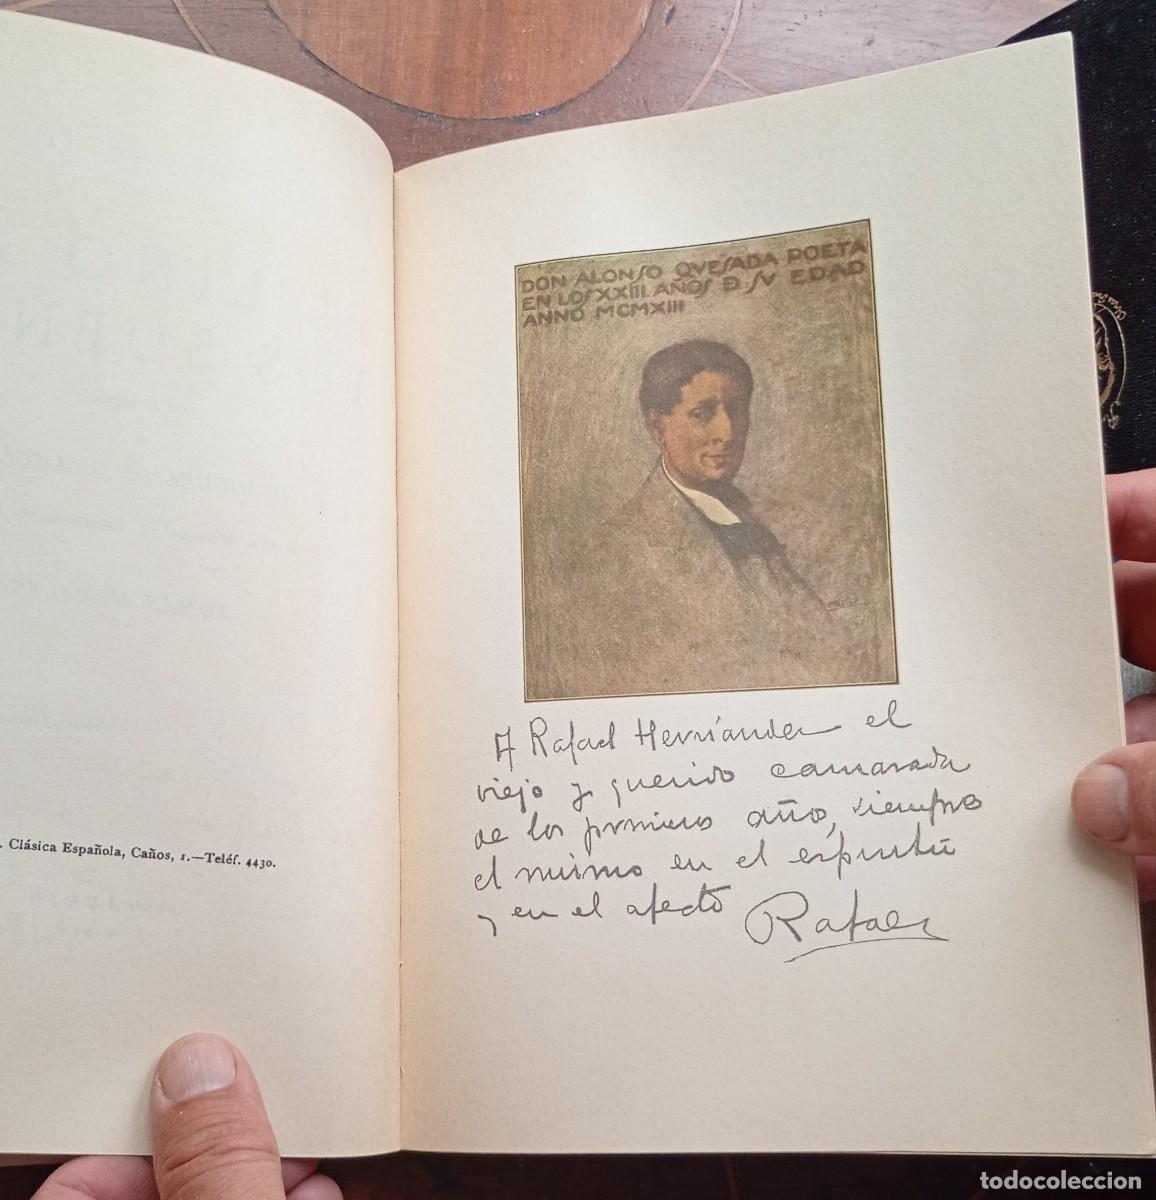 DON ALONSO QVESADA POETA
EN LOS XXIII AÑOS D SV EDAD
ANNO MCMXIII
A Rafael Hernández el
viejo y querido camarada
de los primeros años, siempre
el mismo en el espíritu
y en el afecto Rafael
. Clásica Española, Caños, 1.—Teléf. 4430.
todocoleccion